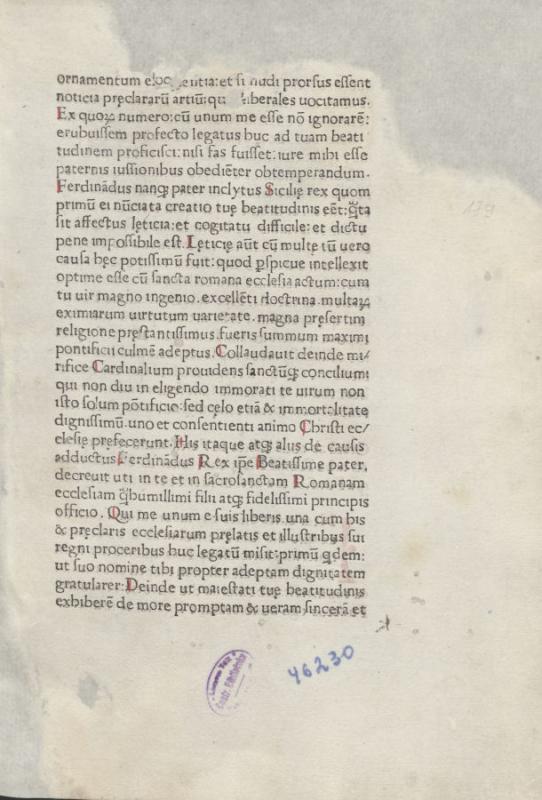 ornamentum eloq entia: et si nudi prorsus essent
noticia pręclararū artiū: qu liberales uocitamus.
Ex quoꝝ numero: cū unum me esse nō ignorarē:
erubuissem profecto legatus huc ad tuam beati
tudinem proficisci: nisi fas fuisset: iure mihi esse
paternis iussionibus obediēter obtemperandum.
Ferdinādus nanqꝫ pater inclytus Sicilię rex quom
primū ei nūciata creatio tuę beatitudinis eēt: q̄ta
sit affectus lęticia: et cogitatu difficile: et dictu
pene impossibile est. Lęticię aūt cū multę tū uero
causa hęc potissimū fuit: quod ꝑspicue intellexit
optime esse cū sancta romana ecclesia actum: cum
tu uir magno ingenio. excellēti doctrina. multaꝝ
eximiarum uirtutum uarietate. magna pręsertim
religione pręstantissimus. fueris summum maximi
pontificii culmē adeptus. Collaudauit deinde mi/
rifice Cardinalium prouidens sanctūqꝫ concilium:
qui non diu in eligendo immorati te uirum non
isto solum pōtificio: sed cęlo etiā & immortalitate
dignissimū. uno et consentienti animo Christi ec/
clesię pręfecerunt. His itaque atqꝫ aliis de causis
adductus Ferdinādus Rex ip̄e Beatissime pater,
decreuit uti in te et in sacrosanctam Romanam
ecclesiam q̄humillimi filii atqꝫ fidelissimi principis
officio. Qui me unum e suis liberis. una cum his
& pręclaris ecclesiarum pręlatis et illustribus sui
regni proceribus huc legatū misit: primū qdem:
ut suo nomine tibi propter adeptam dignitatem
gratularer: Deinde ut maiestati tuę beatitudinis
exhiberē de more promptam & ueram sincerā et
139
46230